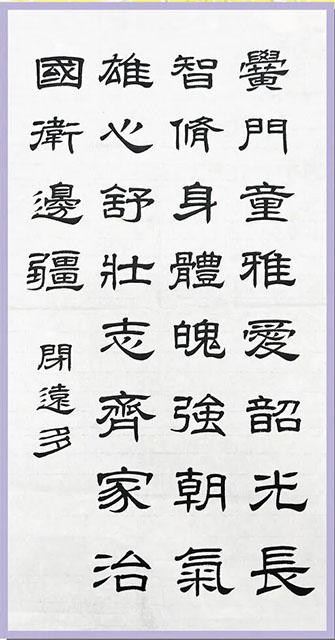 黌門童雅愛韶光長
智脩身體魄強朝氣
雄心舒壯志齊家治
國衛邊疆
閉遠多